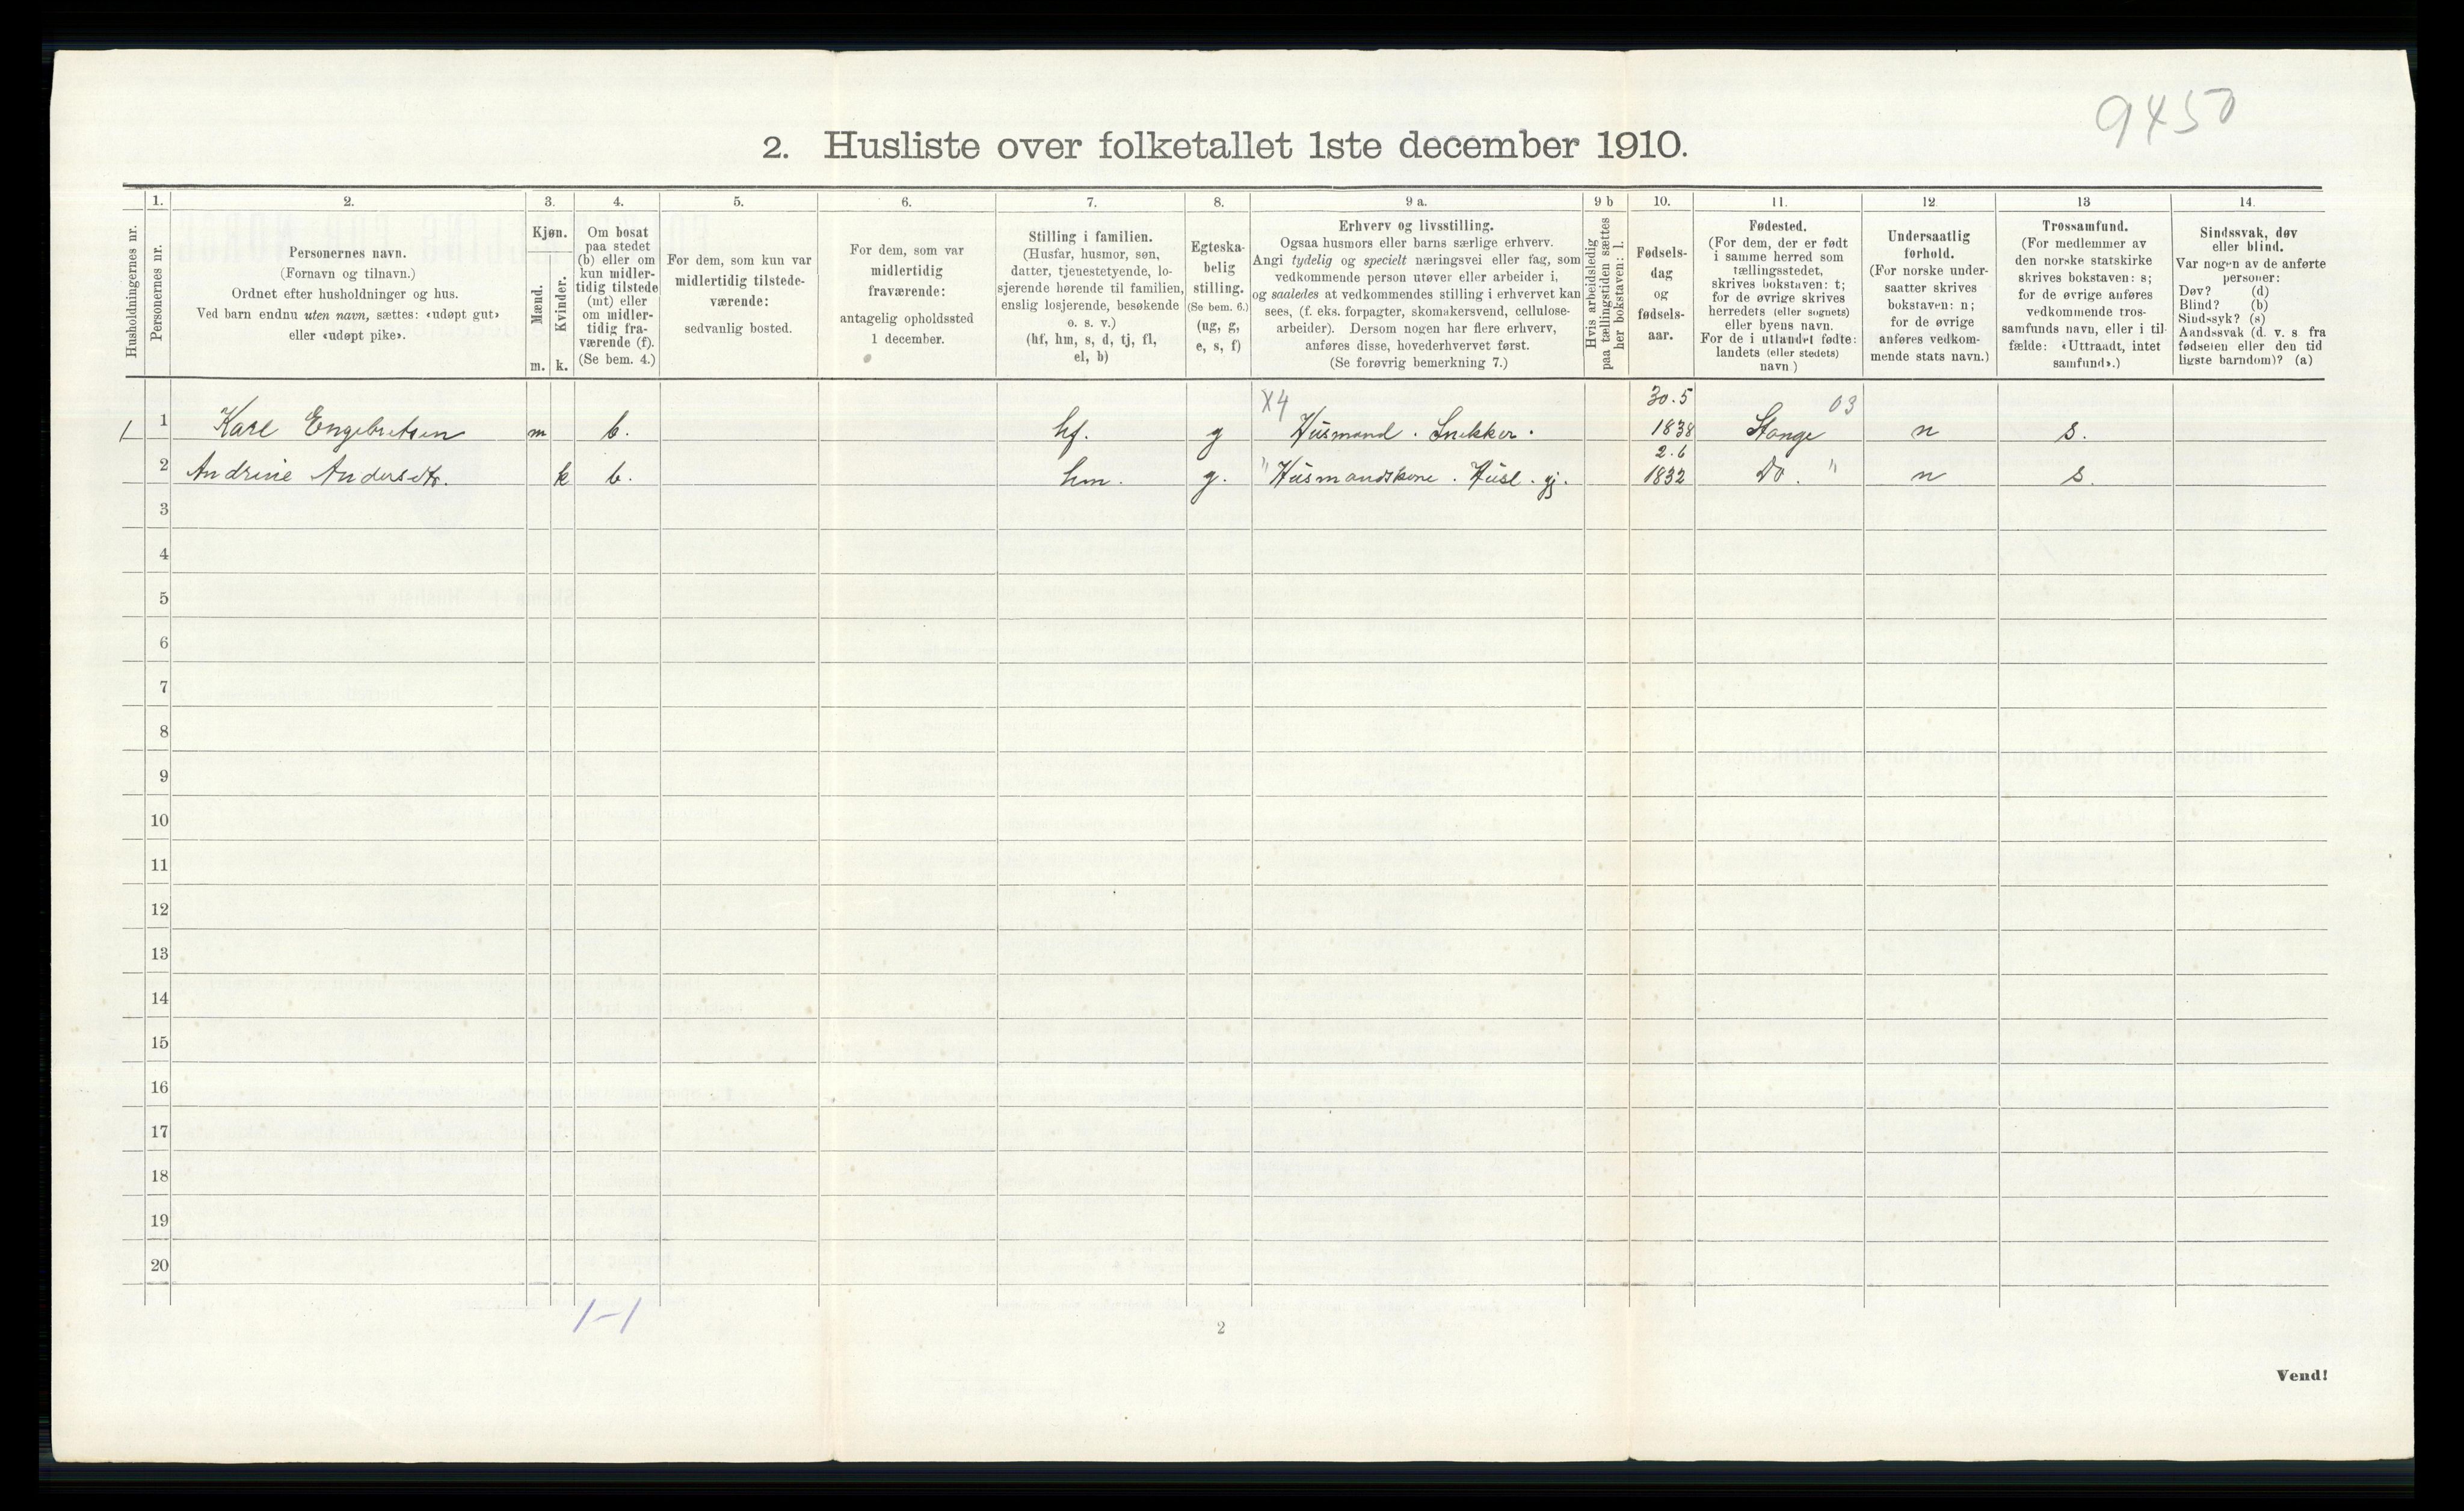 9450
2. Husliste over folketallet 1ste december 1910.
Husholdningernes nr.
1.
Personernes nr.
2.
Personernes navn.
(Fornavn og tilnavn.)
Ordnet efter husholdninger og hus.
Ved barn endnu uten navn, sættes: «udøpt gut»
eller «udøpt pike».
3.
Kjøn.
Mænd.
Kvinder.
m. k.
4.
Om bosat
paa stedet
(b) eller om
kun midler-
tidig tilstede
(mt) eller
om midler-
tidig fra-
værende (f).
(Se bem. 4.)
5.
For dem, som kun var
midlertidig tilstede-
værende:
sedvanlig bosted.
6.
For dem, som var
midlertidig
fraværende:
antagelig opholdssted
1 december.
7.
Stilling i familien.
(Husfar, husmor, søn,
datter, tjenestetyende, lo-
sjerende hørende til familien,
enslig losjerende, besøkende
o. s. v.)
(hf, hm, s, d, tj, fl,
el, b)
8.
Egteska-
belig
stilling.
(Se bem. 6.)
(ug, g,
e, s, f)
9 a.
Erhverv og livsstilling.
Ogsaa husmors eller barns særlige erhverv.
Angi tydelig og specielt næringsvei eller fag, som
vedkommende person utøver eller arbeider i,
og saaledes at vedkommendes stilling i erhvervet kan
sees, (f. eks. forpagter, skomakersvend, cellulose-
arbeider). Dersom nogen har flere erhverv,
anføres disse, hovederhvervet først.
(Se forøvrig bemerkning 7.)
9 b
Hvis arbeidsledig
paa tællingstiden sættes
her bokstaven: l.
10.
Fødsels-
dag
og
fødsels-
aar.
11.
Fødested.
(For dem, der er født
i samme herred som
tællingsstedet,
skrives bokstaven: t;
for de øvrige skrives
herredets (eller sognets)
eller byens navn.
For de i utlandet fødte:
landets (eller stedets)
navn)
12
Undersaatlig
forhold.
(For norske under-
saatter skrives
bokstaven: n;
for de øvrige
anføres vedkom-
mende stats navn.)
13
Trossamfund.
(For medlemmer av
den norske statskirke
skrives bokstaven: s;
for de øvrige anføres
vedkommende tros-
samfunds navn, eller i til-
fælde: «Uttraadt, intet
samfund».)
14.
Sindssvak, døv
eller blind.
Var nogen av de anførte
personer:
Døv? (d)
Blind? (b)
Sindssyk? (s)
Aandssvak (d. v. s fra
fødselen eller den tid
ligste barndom)? (a)
X4 30.5 03
1 1 Karl Engebretsen m b. hf. g Husmand. Snekker. 1838 Stange n s.
2.6
2 Andrine Andersdtr. k b. hm. g. " Husmandskone. Husl. gj. 1832 Do. " n s.
3
4
5
6
7
8
9
10
11
12
13
14
15
16
17
18
19
20
1-1
2
Vend!